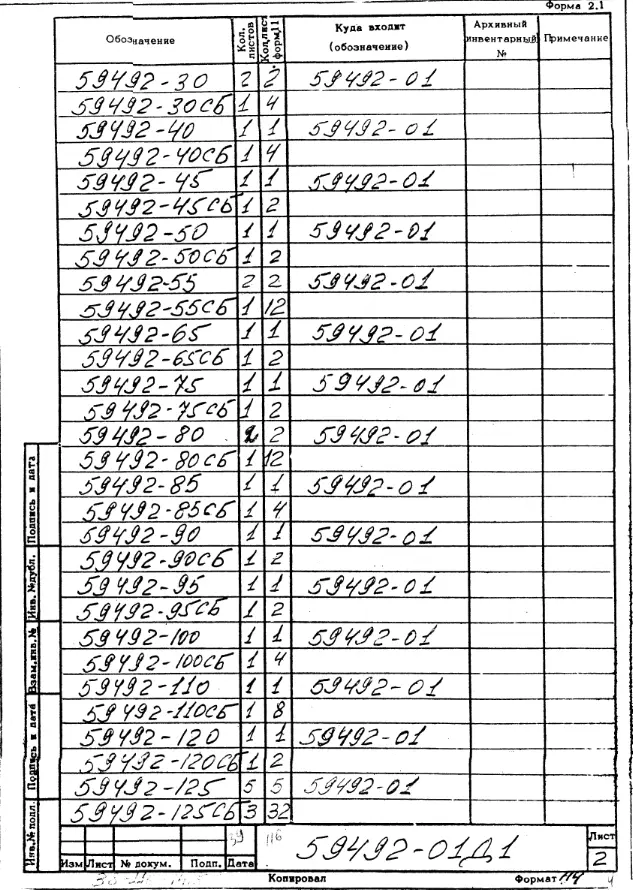 Форма 2.1
Обозначение Кол. листов Кол.лист форм.11 Куда входит (обозначение) Архивный инвентарный № Примечание
59492-30 2 2 59492-01
59492-30СБ 1 4
59492-40 1 1 59492-01
59492-40СБ 1 4
59492-45 1 1 59492-01
59492-45СБ 1 2
59492-50 1 1 59492-01
59492-50СБ 1 2
59492-55 2 2 59492-01
59492-55СБ 1 12
59492-65 1 1 59492-01
59492-65СБ 1 2
59492-75 1 1 59492-01
59492-75СБ 1 2
59492-80 2 2 59492-01
59492-80СБ 1 12
59492-85 1 1 59492-01
59492-85СБ 1 4
59492-90 1 1 59492-01
59492-90СБ 1 2
59492-95 1 1 59492-01
59492-95СБ 1 2
59492-100 1 1 59492-01
59492-100СБ 1 4
59492-110 1 1 59492-01
59492-110СБ 1 8
59492-120 1 1 59492-01
59492-120СБ 1 2
59492-125 5 5 59492-01
59492-125СБ 3 32
Подпись и дата
Инв. №дубл.
Взам.инв.№
Подпись и дата
Инв.№ подл.
39 116
59492-01Д1
Лист
2
Изм Лист № докум. Подп. Дата
Копировал Формат 11Ч 4